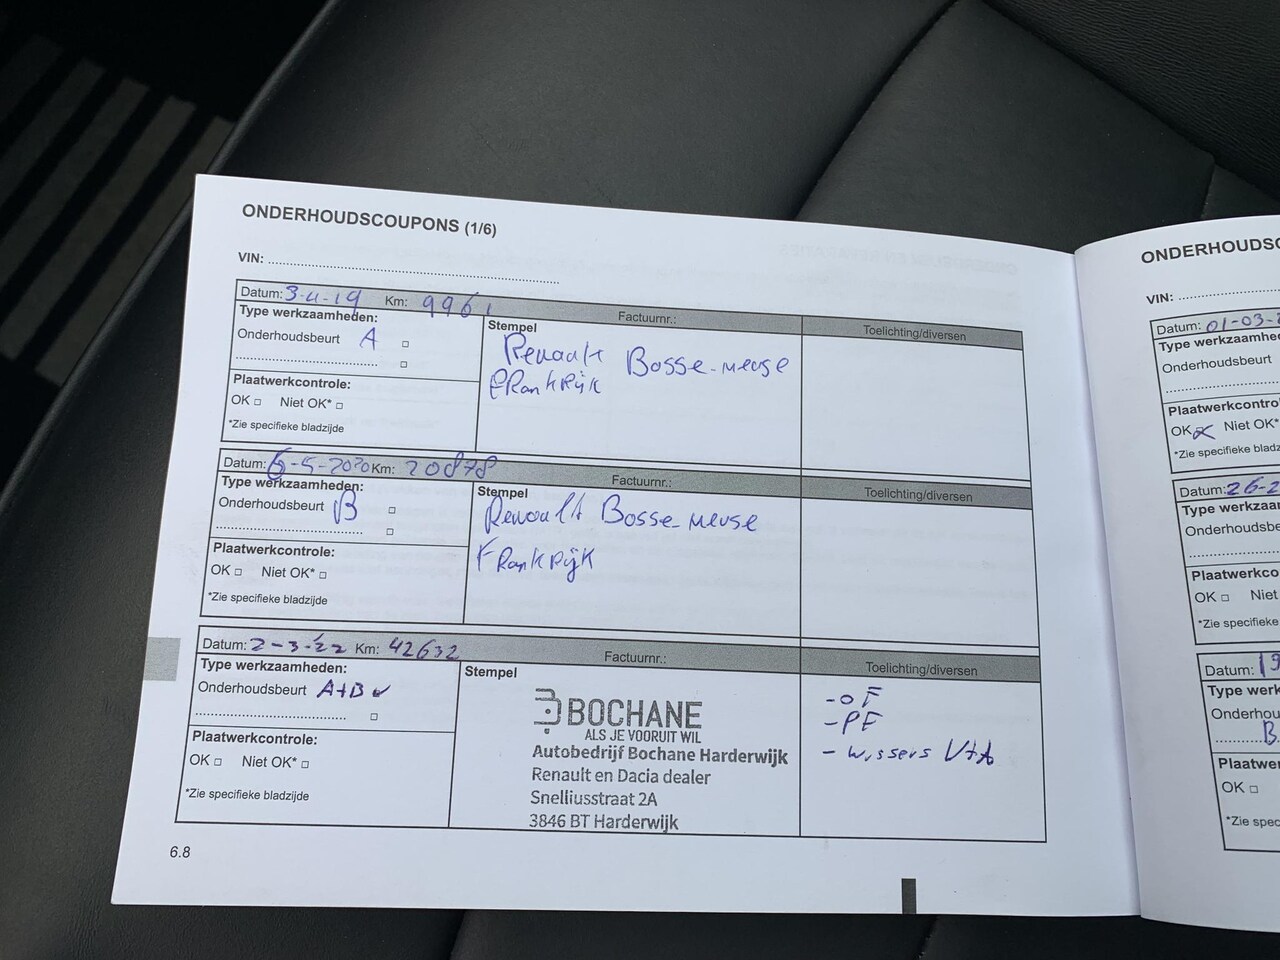 ONDERHOUDSCOUPONS (1/6)
VIN:
Datum: 3-4-19 Km: 9961 Factuurnr.: Toelichting/diversen
Type werkzaamheden:
Onderhoudsbeurt A
Plaatwerkcontrole:
OK Niet OK*
*Zie specifieke bladzijde
Stempel
Renault Bosse-meuse
FRankRijk
Datum: 6-5-2020 Km: 20878 Factuurnr.: Toelichting/diversen
Type werkzaamheden:
Onderhoudsbeurt B
Plaatwerkcontrole:
OK Niet OK*
*Zie specifieke bladzijde
Stempel
Renault Bosse-meuse
FRankRijk
Datum: 2-3-'22 Km: 42632 Factuurnr.: Toelichting/diversen
Type werkzaamheden:
Onderhoudsbeurt A+B
Plaatwerkcontrole:
OK Niet OK*
*Zie specifieke bladzijde
Stempel
BOCHANE
ALS JE VOORUIT WIL
Autobedrijf Bochane Harderwijk
Renault en Dacia dealer
Snelliusstraat 2A
3846 BT Harderwijk
- OF
- PF
- wissers V+A
6.8
ONDERHOUDSC
VIN:
Datum: 01-03-
Type werkzaamhe
Onderhoudsbeurt
Plaatwerkcontro
OK Niet OK*
*Zie specifieke bladz
Datum: 26-2
Type werkzaa
Onderhoudsbe
Plaatwerkco
OK Niet
*Zie specifieke
Datum: 19
Type werk
Onderhou
B
Plaatwe
OK
*Zie spec